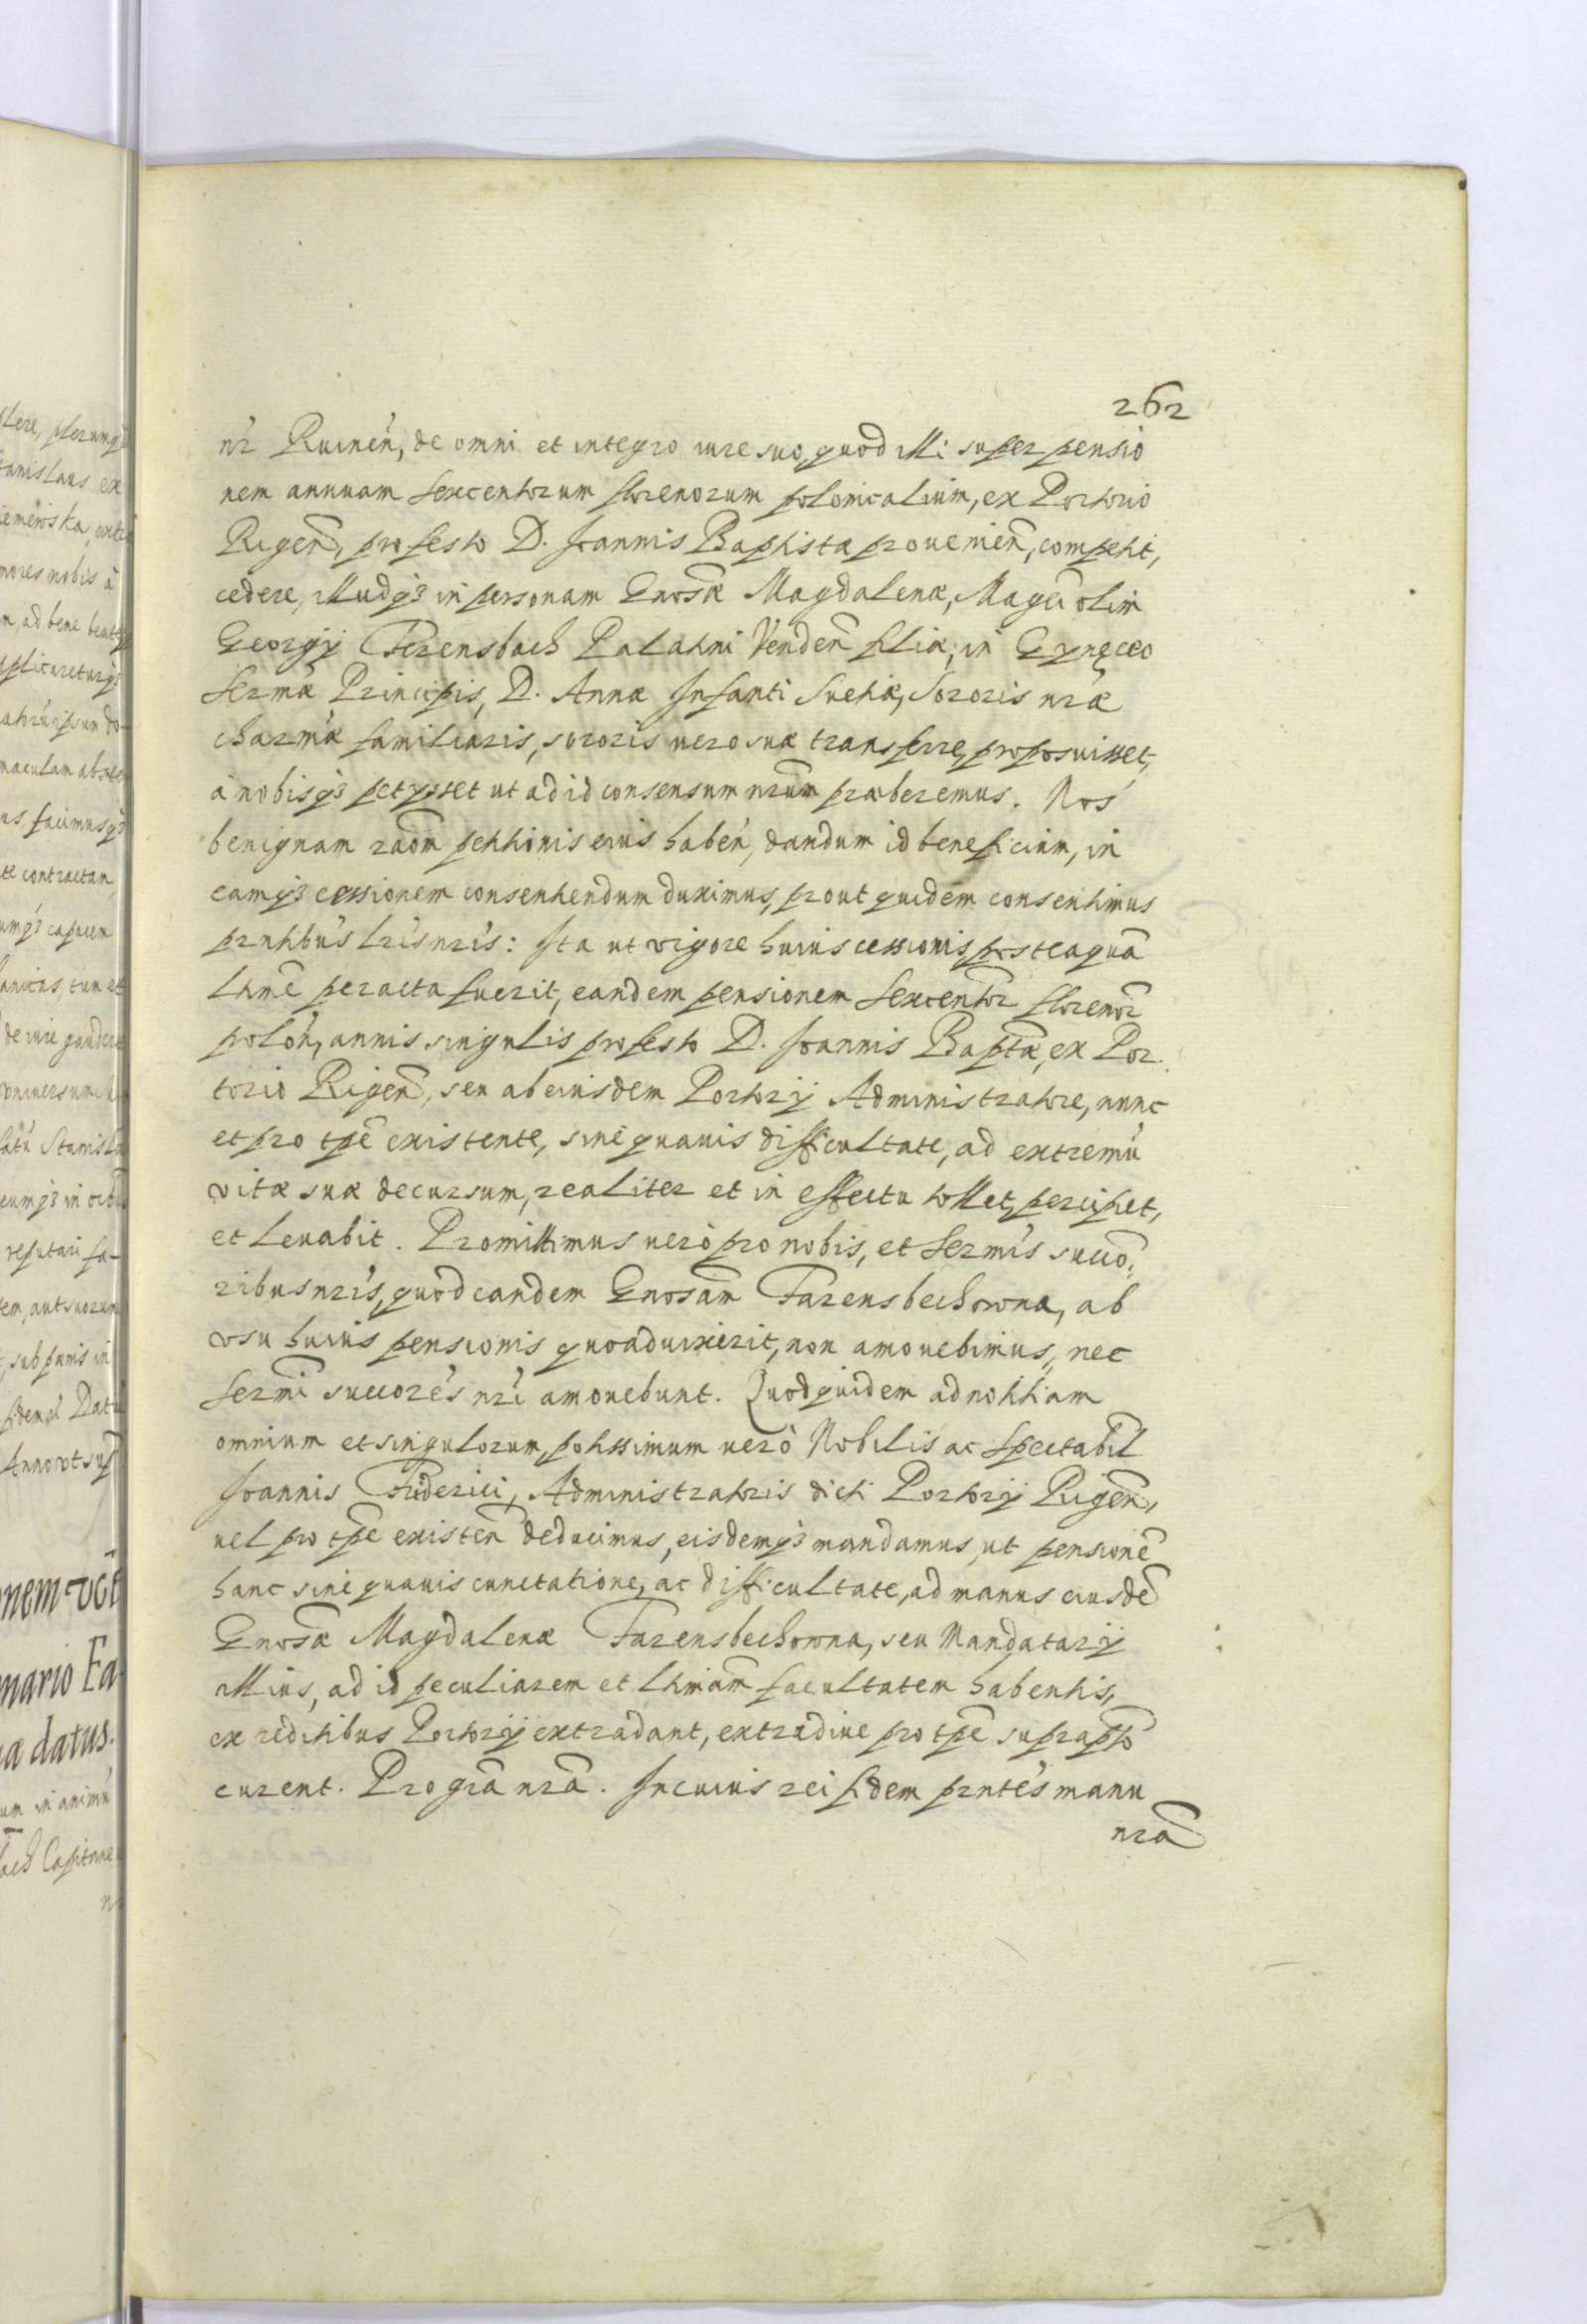 262
nr̃ Ruinen̄, de omni et integro iure suo, quod illi super pensio
nem annuam sexcentorum florenorum polonicalium, ex Portorio
Rigen̄, pro festo D. Joannis Baptistæ prouenien̄, competit,
cedere, illudq3 in personam Gnosæ Magdalenæ, Magci olim
Georgij Ferensbach Palatini Venden̄ filiæ, in Gynęceo
Sermæ Principis, D. Annæ Infanti Suetiæ, Sororis nræ
charmæ familiaris, sororis uero suæ transferre, proposuisset,
à nobisq3 petysset ut ad id consensum nrūm præberemus. Nos
benignam raōm petitionis eius haben̄, dandum id beneficium, in
eamq3 cessionem consentiendum duximus, prout quidem consentimus
prntibus lris nris: Ita ut vigore huius cessionis, posteaquā
ltimē peracta fuerit, eandem pensionem sexcentor̄ florenor̄
polon̄, annis singulis pro festo D. Joannis Baptæ, ex Por
torio Rigen̄, seu ab eiusdem Portorij Administratore, nunc
et pro tpē existente, sine quauis difficultate, ad extremū
vitæ suæ decursum, realiter et in effectu tollet, percipiet,
et leuabit. Promittimus uerò pro nobis, et Sermis succo:
ribus nris, quod eandem Gnosam̄ Farensbechowna, ab
vsu huius pensionis quoad uixerit, non amouebimus, nec
Sermi succores nri amouebunt. Quod quidem ad notitiam
omnium et singulorum, potissimum uerò Nobilis ac Spectabil̄
Joannis Friderici, Administratoris dicti Portorij Rigen̄,
uel pro tpē existen̄ deducimus, eisdemq3 mandamus, ut pensionē
hanc sine quauis cunctatione, ac difficultate, ad manus eiusdē
Gnosæ Magdalenæ Farensbechowna, seu Mandatarij
illius, ad id peculiarem et ltimam̄ facultatem habentis,
ex reditibus Portorij extradant, extradiue pro tpē supraptō
curent. Pro grā nrā. In cuius rei fidem prntes manu
nrā